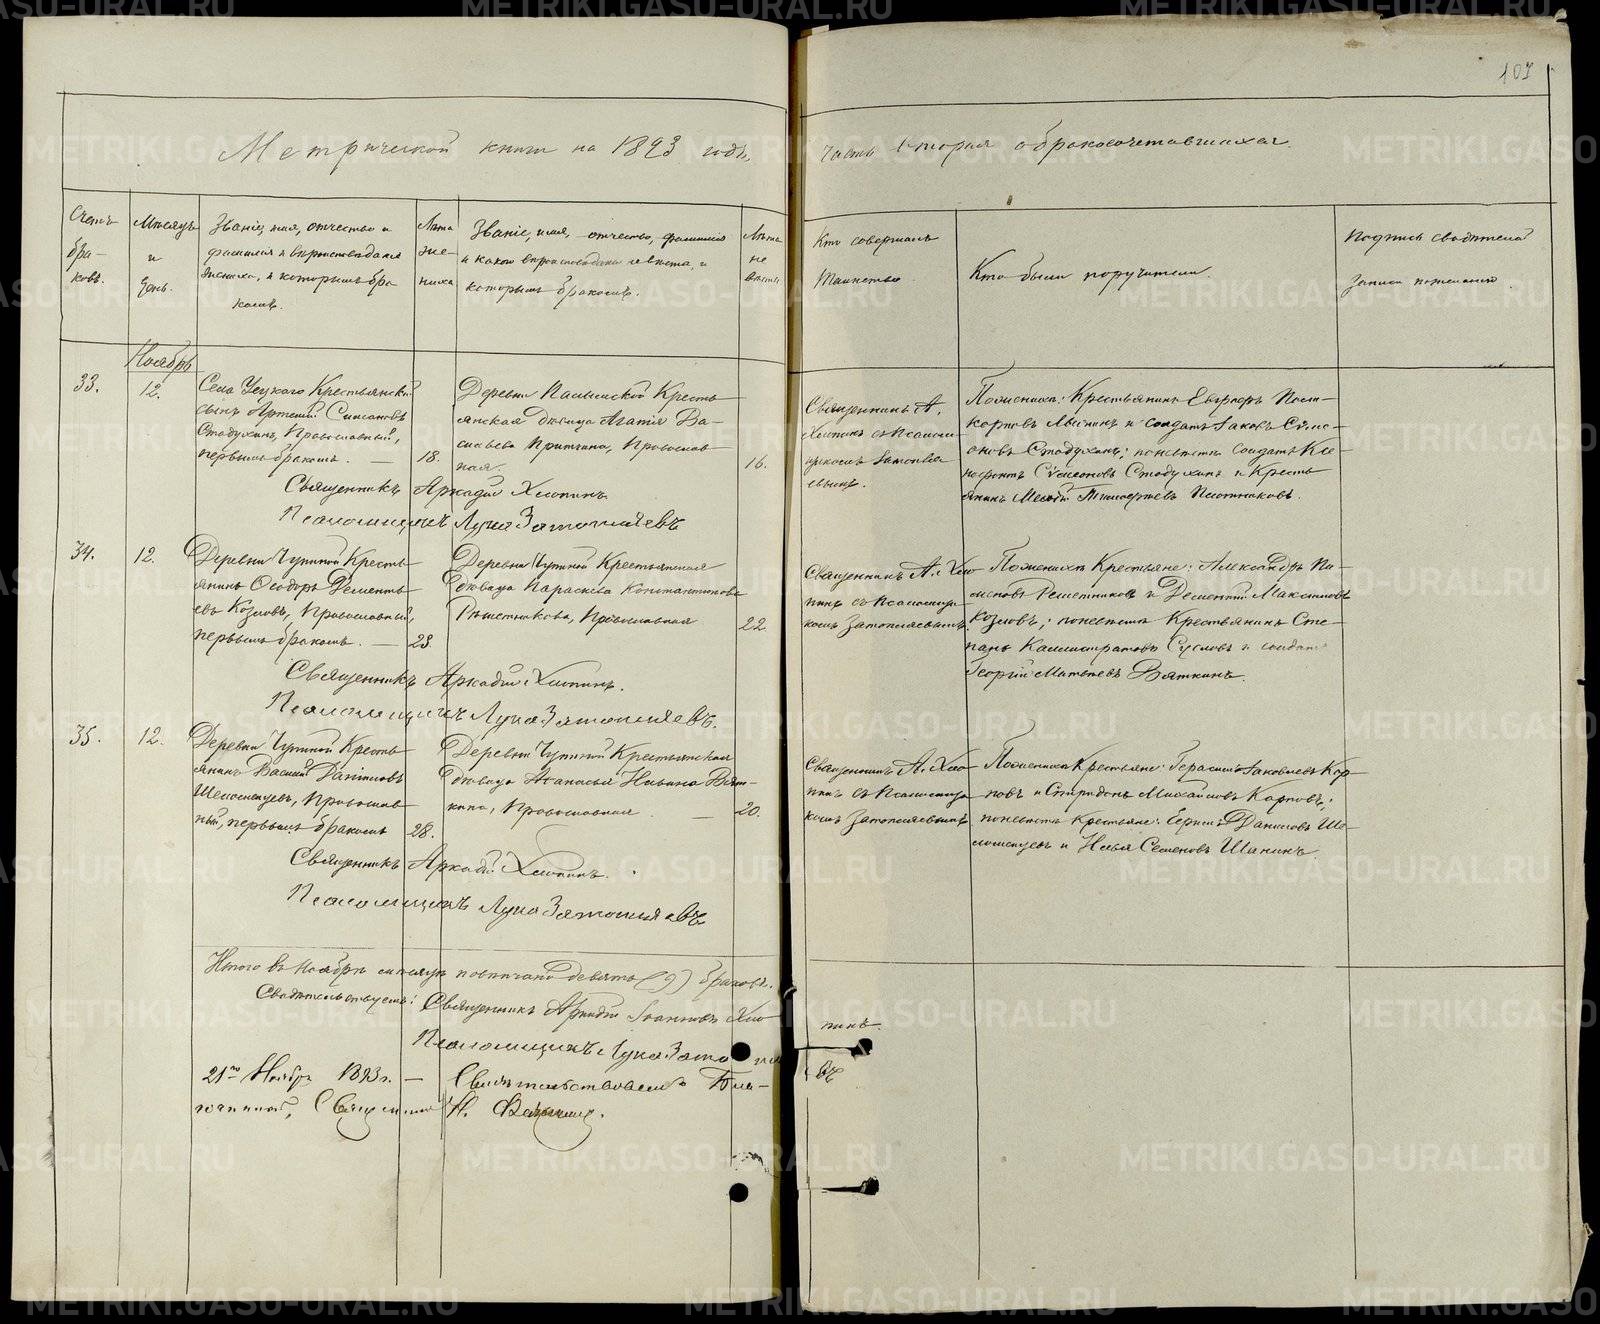 107
Метрической книги на 1893 годъ,
часть вторая о бракосочетавшихся.
Счетъ
бра-
ковъ.
Мѣсяцъ
и
день.
Званіе, имя, отчество и
фамилія и вѣроисповѣданіе
жениха, и которымъ бра
комъ.
Лѣта
же-
ниха
Званіе, имя, отчество, фамилія
и какого вѣроисповѣданія невѣста, и
которымъ бракомъ.
Лѣта
не
вѣсты
Кто совершалъ
Таинство
Кто были поручители.
Подпись свидѣтелей
записи по желанію
Ноябрь
33.
12.
Села Уецкаго Крестьянскій
сынъ Артемій Симеоновъ
Стадухинъ, Православный,
первымъ бракомъ. —
18.
Деревни Кресть
янская дѣвица Агатія Ва-
сильева Православ
ная.
16.
Священникъ А.
Хлопинъ съ Псалом
щикомъ Затопля
евымъ.
Поженихѣ: Крестьянинъ Евграфъ
и солдатъ Іаковъ Симе-
оновъ Стадухинъ; поневѣстѣ солдатъ
Симеоновъ Стадухинъ и Кресть
янинъ Тимофеевъ Плотниковъ.
Священникъ Аркадій Хлопинъ
Псаломщикъ Лука Затопляевъ
34.
12.
Деревни Чупиной Кресть
янинъ Ѳеодоръ Дементь
евъ Козловъ, Православный,
первымъ бракомъ. —
23.
Деревни Чупиной Крестьянская
дѣвица Параскева Константинова
Рѣшетникова, Православная
22.
Священникъ А. Хло
пинъ съ Псаломщи
комъ Затопляевымъ.
Поженихѣ Крестьяне: Александръ
Решетниковъ и Дементій Максимовъ
Козловъ; поневѣстѣ Крестьянинъ Сте-
панъ Каллистратовъ Сусловъ и солдатъ
Георгій Матвѣевъ Вяткинъ.
Священникъ Аркадій Хлопинъ.
Псаломщикъ Лука Затопляевъ.
35.
12.
Деревни Чупиной Кресть
янинъ Василій Даниловъ
Шеломенцевъ, Православ
ный, первымъ бракомъ
28.
Деревни Чупиной Крестьянская
дѣвица Аѳанасья Ильина Вят-
кина, Православная. —
20.
Священникъ А. Хло
пинъ съ Псаломщи
комъ Затопляевымъ
Поженихѣ Крестьяне: Герасимъ Іаковлевъ Кар
повъ и Спиридонъ Михайловъ Карповъ;
поневѣстѣ Крестьяне: Даниловъ Ше-
ломенцевъ и Илья Семеновъ Шанинъ.
Священникъ Аркадій Хлопинъ.
Псаломщикъ Лука Затопляевъ
Итого въ Ноябрѣ мѣсяцѣ повѣнчано девять (9) браковъ.
Свидѣтельствуемъ: Священникъ Аркадій Іоанновъ Хло
пинъ.
Псаломщикъ Лука Затопля
евъ
21го Ноября 1893 г. — Свидѣтельствовалъ Бла-
гочинный, Священникъ Н.